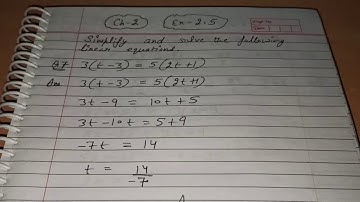 Ch-2 Ex-2.5
Simplify and solve the following
linear equations.
Q7 3(t-3) = 5(2t+1)
Ans 3(t-3) = 5(2t+1)
3t-9 = 10t+5
3t-10t = 5+9
-7t = 14
t = 14/-7